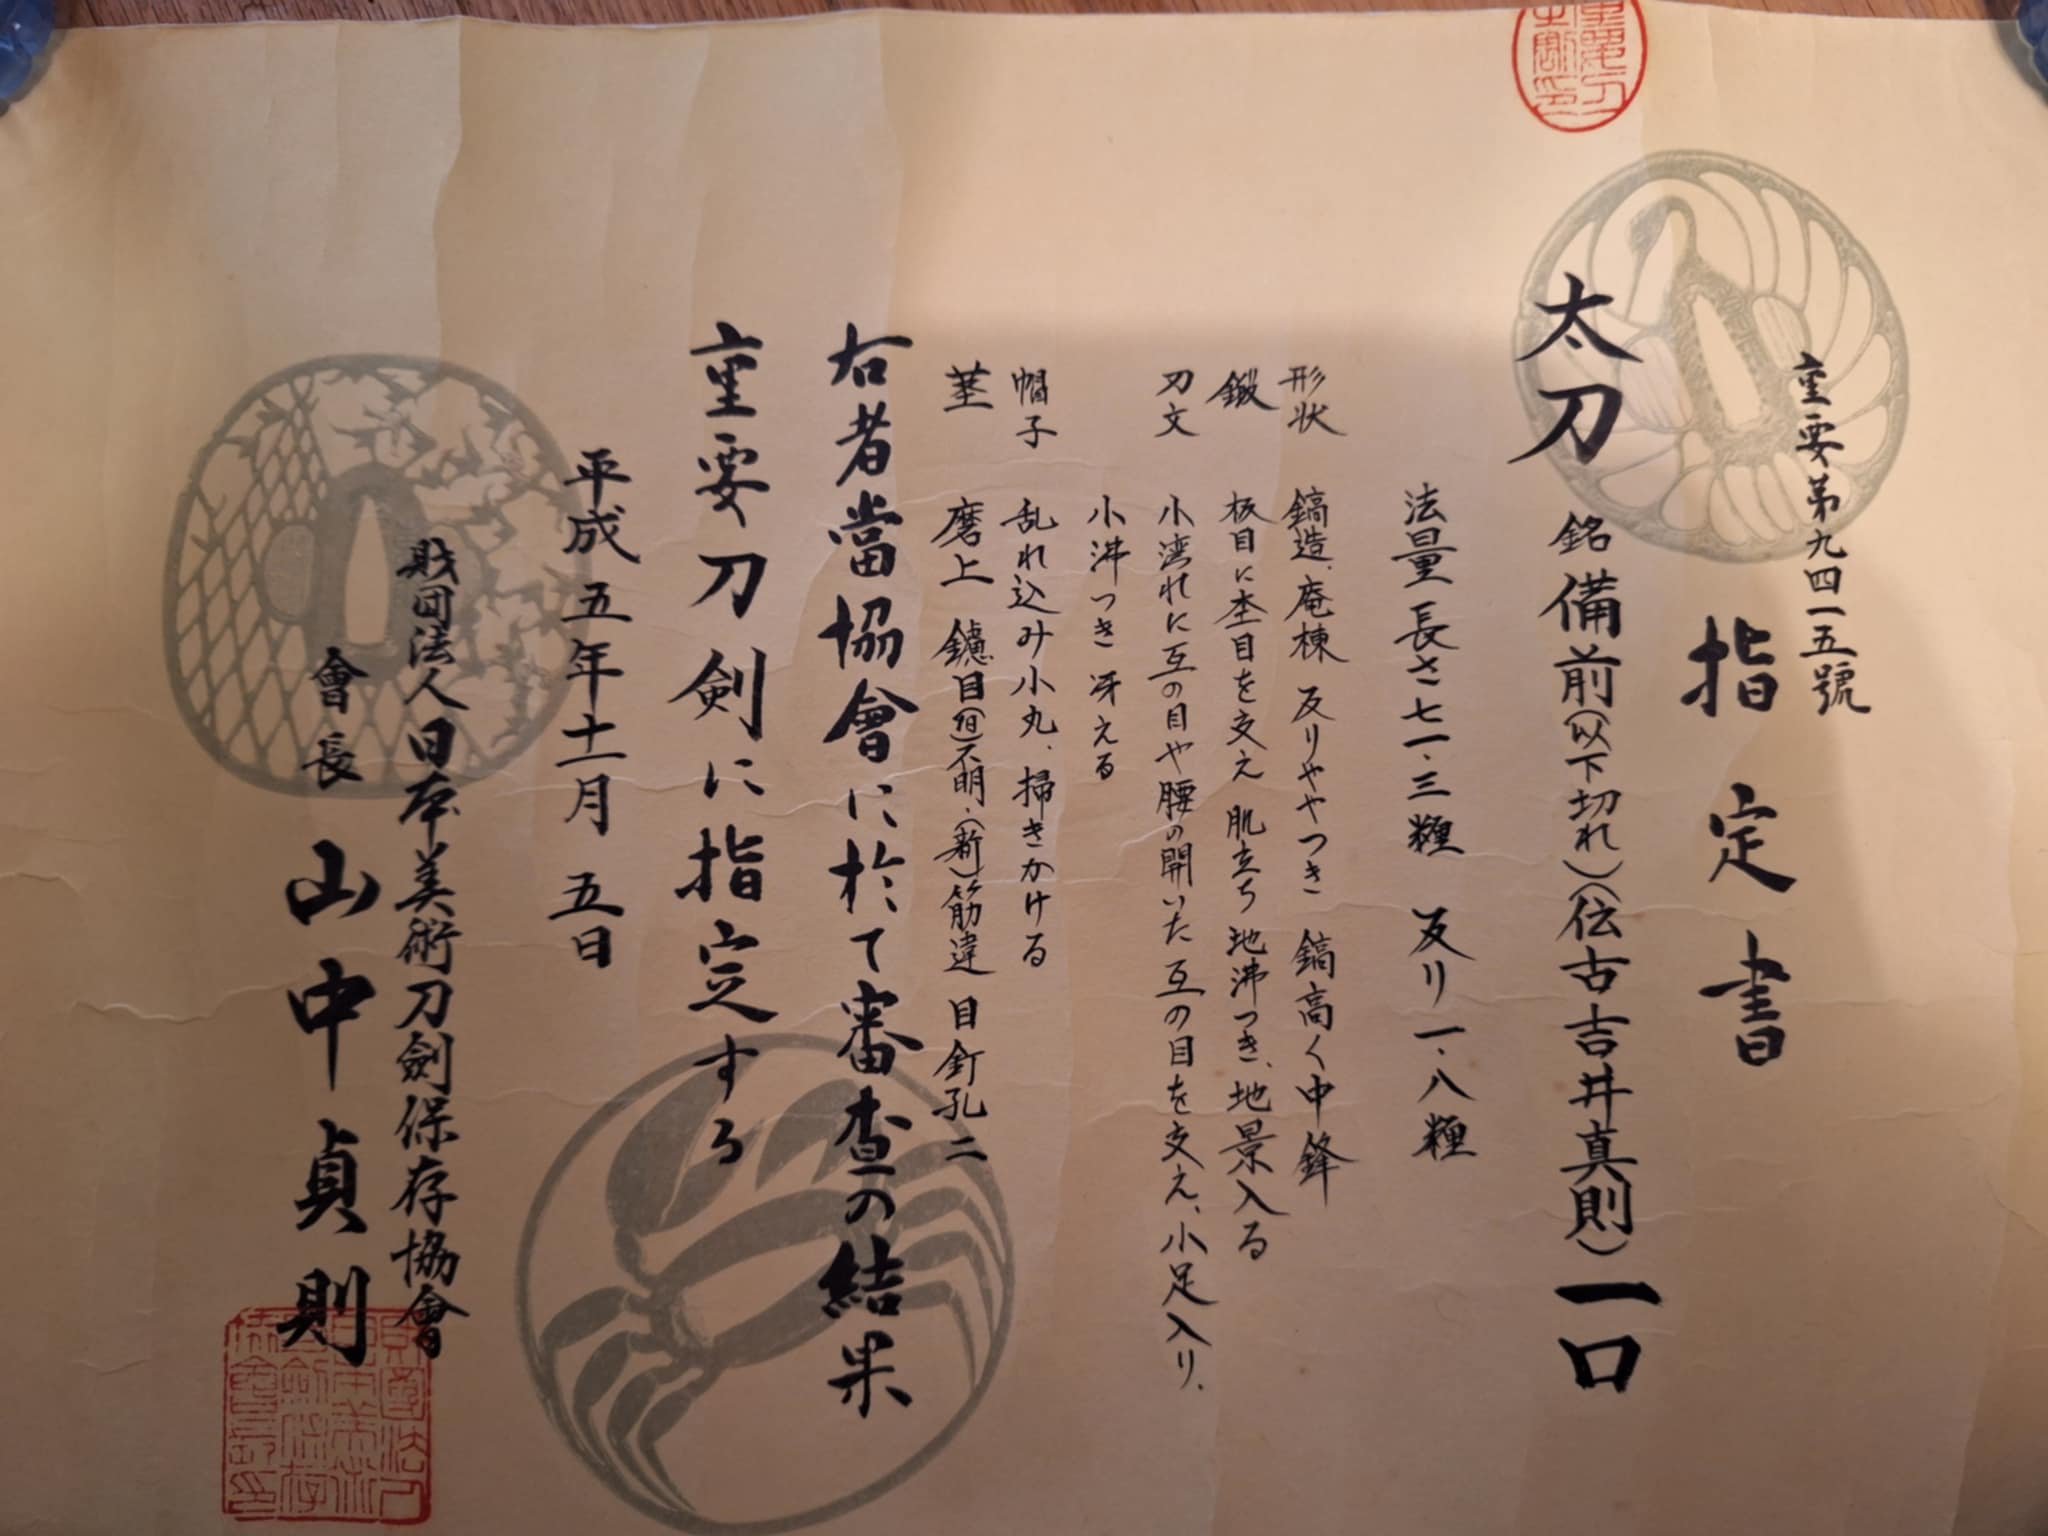 重要第九四一五號
指定書
太刀 銘 備前(以下切れ)(伝古吉井真則) 一口
法量 長さ七一・三糎 反り一・八糎
形状 鎬造、庵棟 反りややつき 鎬高く中鋒
鍛 板目に杢目を交え 肌立ち 地沸つき、地景入る
刃文 小湾れに互の目や腰の開いた互の目を交え、小足入り、
小沸つき冴える
帽子 乱れ込み小丸、掃きかける
茎 磨上 鑢目(旧)不明・(新)筋違 目釘孔二
右者當協會に於て審査の結果
重要刀剣に指定する
平成五年十一月五日
財団法人日本美術刀劍保存協會
會長 山中貞則